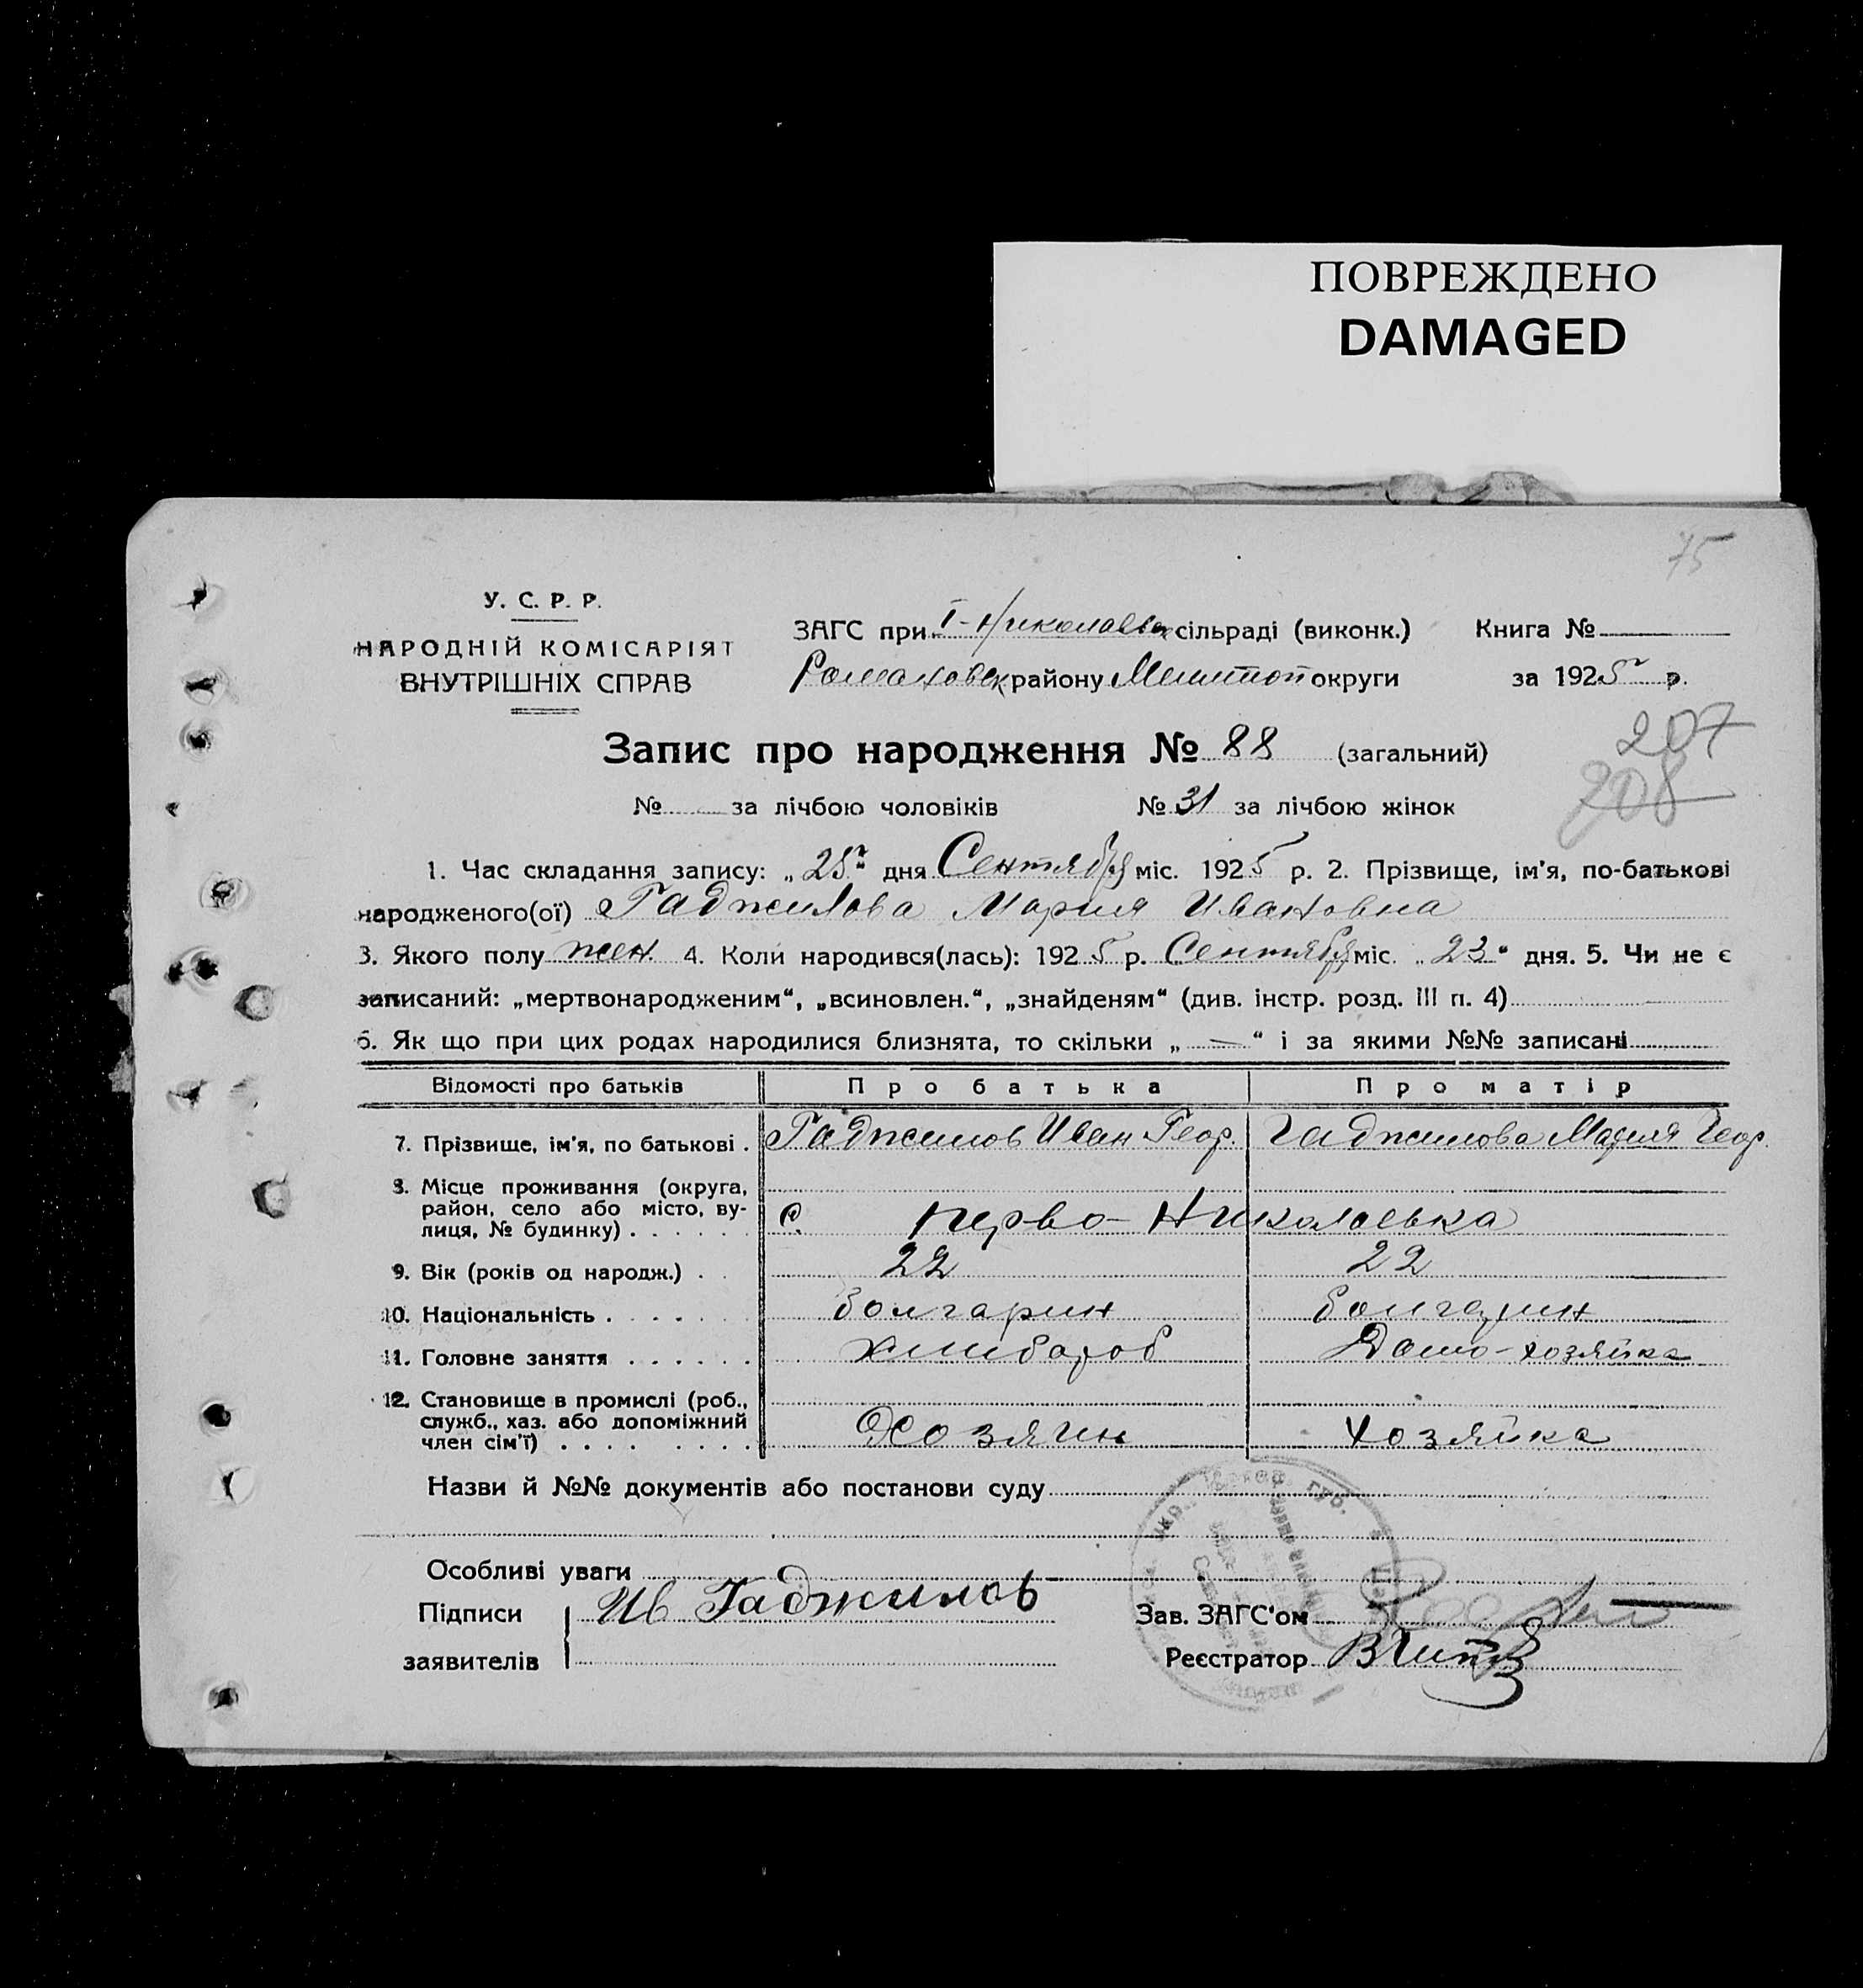 ПОВРЕЖДЕНО
DAMAGED
75
У. С. Р. Р.
НАРОДНІЙ КОМІСАРІЯТ
ВНУТРІШНІХ СПРАВ
ЗАГС при І-Николаевск сільраді (виконк.) Книга №
Романовск району Мелитоп округи за 1925 р.
Запис про народження № 88 (загальний)
207
208
№ за лічбою чоловіків № 31 за лічбою жінок
1. Час складання запису: „25" дня Сентября міс. 1925 р. 2. Прізвище, ім'я, по-батькові
народженого(ої) Гаджилова Мария Ивановна
3. Якого полу жен. 4. Коли народився(лась): 1925 р. Сентября міс. „23" дня. 5. Чи не є
записаний: „мертвонародженим", „всиновлен.", „знайденям" (див. інстр. розд. III п. 4)
6. Як що при цих родах народилися близнята, то скільки „ — " і за якими №№ записані
Відомості про батьків Про батька Про матір
7. Прізвище, ім'я, по батькові . Гаджилов Иван Геор. Гаджилова Мария Геор.
8. Місце проживання (округа,
район, село або місто, ву-
лиця, № будинку) . . . . . . с. Перво-Николаевка
9. Вік (років од народж.) . . 22 22
10. Національність . . . . . . . болгарин болгарин
11. Головне заняття . . . . . . хлибороб Домо-хозяйка
12. Становище в промислі (роб.,
служб., хаз. або допоміжний
член сім'ї) . . . . . . . . . Хозяин хозяйка
Назви й №№ документів або постанови суду
Особливі уваги
Підписи Ив Гаджилов Зав. ЗАГС'ом
заявителів Реєстратор